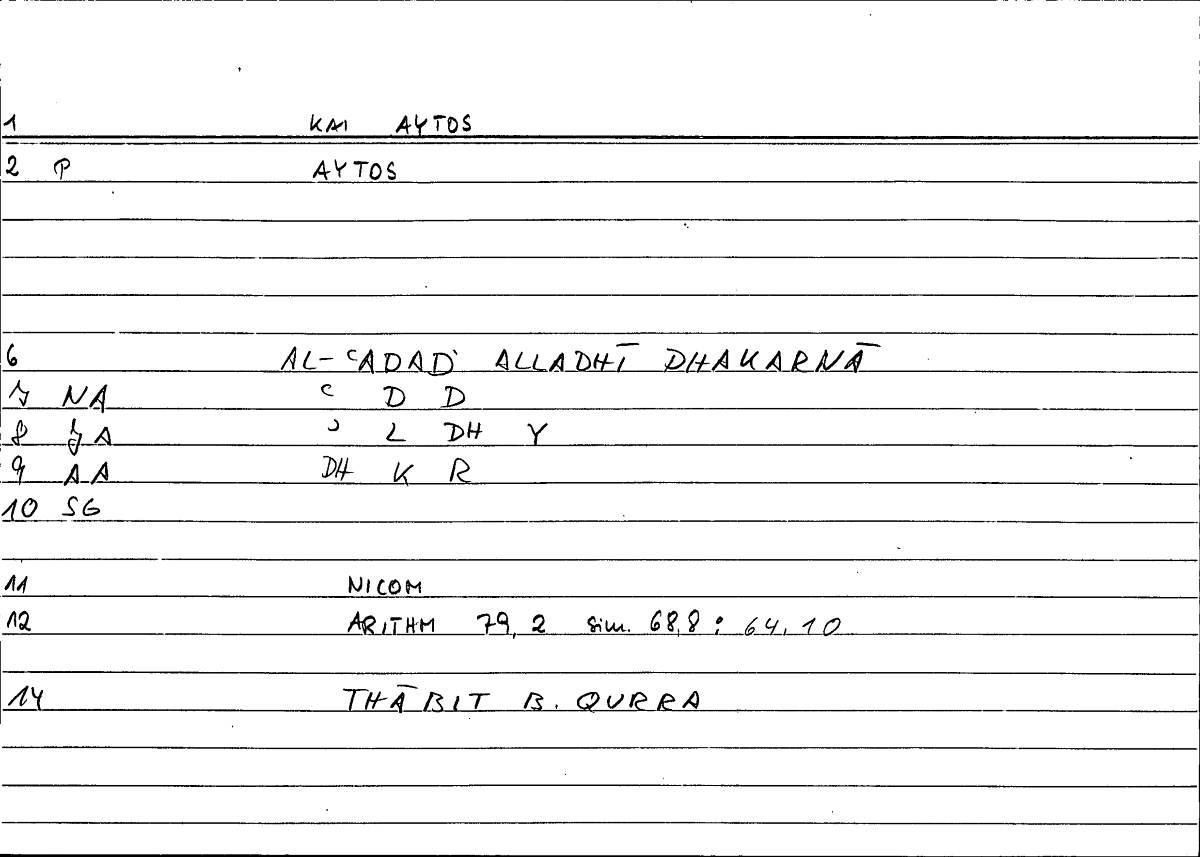 1 KAI AYTOS
2 P AYTOS
6 AL-ʿADAD ALLADHĪ DHAKARNĀ
7 NA ʿ D D
8 JA ʾ L DH Y
9 AA DH K R
10 SG
11 NICOM
12 ARITHM 79, 2 sim. 68,8 : 64, 10
14 THĀBIT B. QURRA